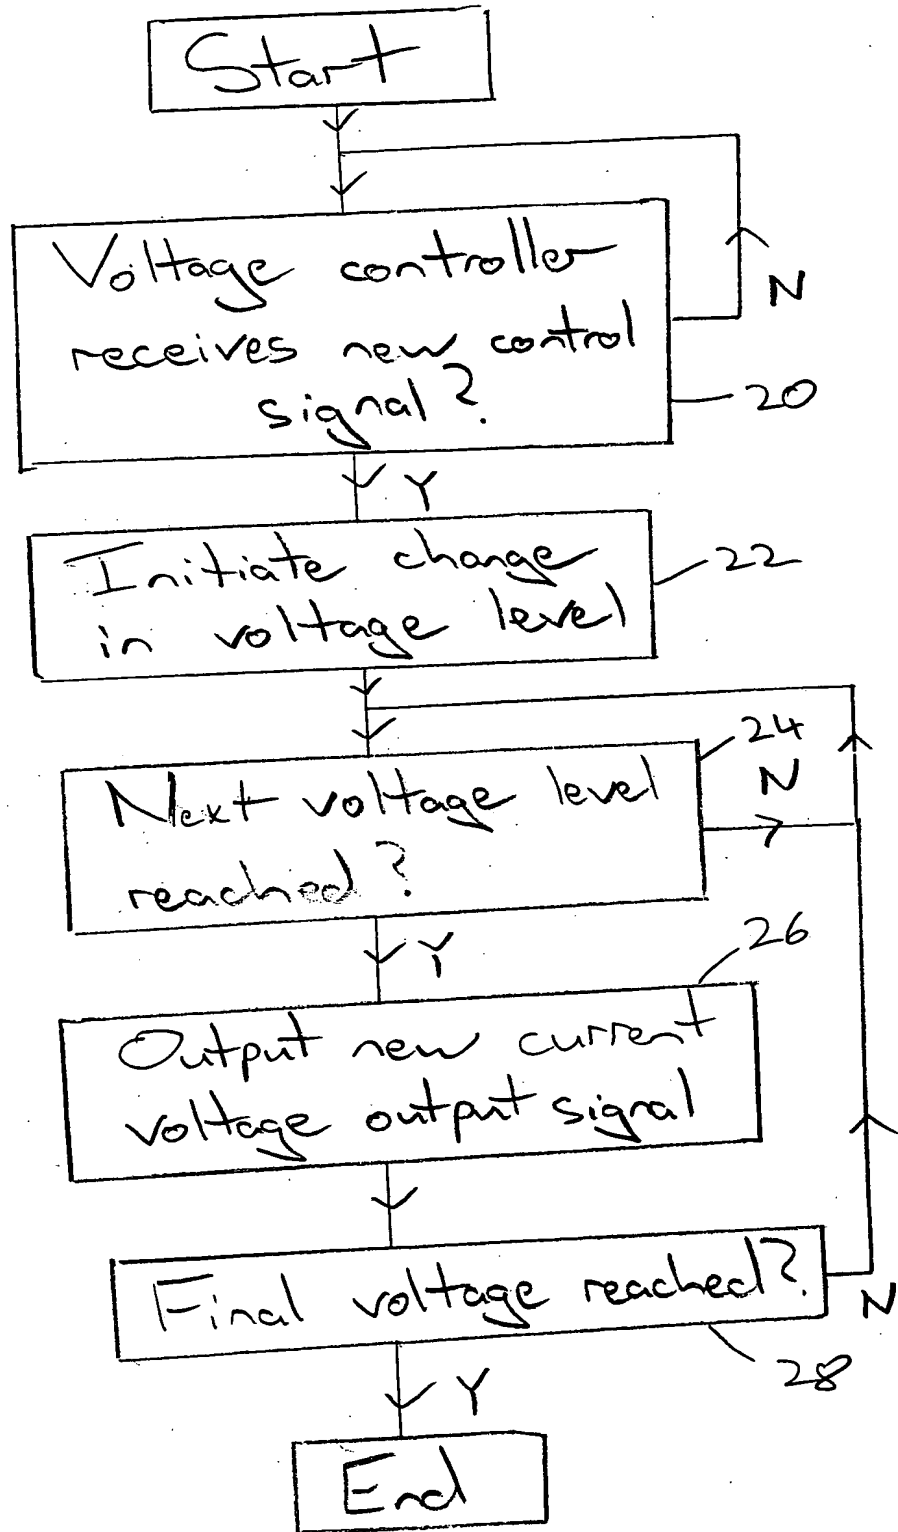 Start
Voltage controller
N
receives new control
signal?
20
Y
Initiate change
22
in voltage level
24
Next voltage level
N
reached?
Y
26
Output new current
voltage output signal
Final voltage reached?
N
28
Y
End